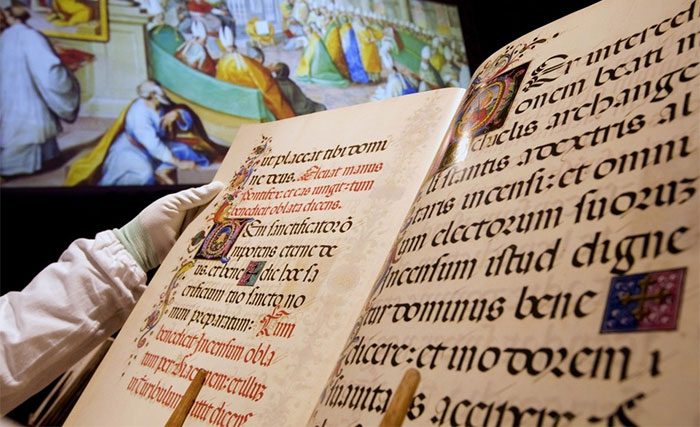 ut placeat tibi domi
ne deus. Eleuat manus
Pontifex et eas iungit: tum
benedicit oblata dicens.
Veni sanctificator o
nipotens eterne de
us: et bene dic hoc sa
crificium tuo sancto no
mini preparatum: Tum
benedicit Incensum obla
tum per Diaconem: et illud
in thuribulum mittit dicens
Per interces
onem beati mi
chaelis archange
li stantis a dextris al
taris incensi: et omni
um electorum suorum
incensum istud digne
tur dominus bene
dicere: et in odorem
suauitatis accipere